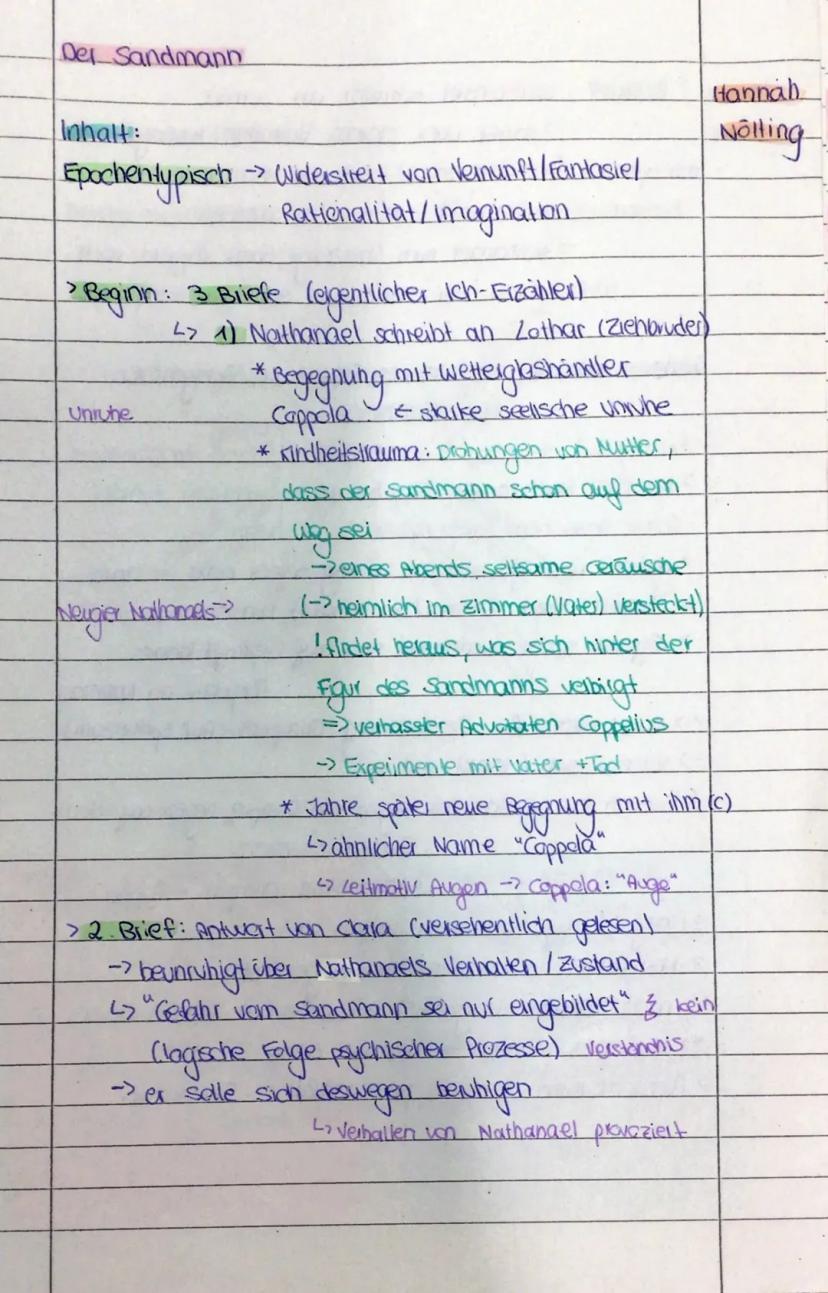 Der Sandmann
Hannah
Nölting
Inhalt:
Epochentypisch -> Widerstreit von Vernunft/Fantasie/
Rationalität/Imagination
> Beginn: 3 Briefe (eigentlicher Ich-Erzähler)
↳ 1) Nathanael schreibt an Lothar (Ziehbruder)
* Begegnung mit Wetterglashändler
Unruhe Coppola ← starke seelische Unruhe
* Kindheitstrauma: Drohungen von Mutter,
dass der Sandmann schon auf dem
Weg sei
-> eines Abends seltsame Geräusche
Neugier Nathanaels -> (-> heimlich im Zimmer (Vater) versteckt)
! findet heraus, was sich hinter der
Figur des Sandmanns verbirgt
=> verhasster Advokaten Coppelius
-> Experimente mit Vater + Tod
* Jahre später neue Begegnung mit ihm (C)
↳ ähnlicher Name "Coppola"
↳ Leitmotiv Augen -> Coppola: "Auge"
> 2. Brief: Antwort von Clara (versehentlich gelesen)
-> beunruhigt über Nathanaels Verhalten / Zustand
↳ "Gefahr vom Sandmann sei nur eingebildet" kein
(logische Folge psychischer Prozesse) Verständnis
-> er solle sich deswegen beruhigen
↳ Verhalten von Nathanael provoziert